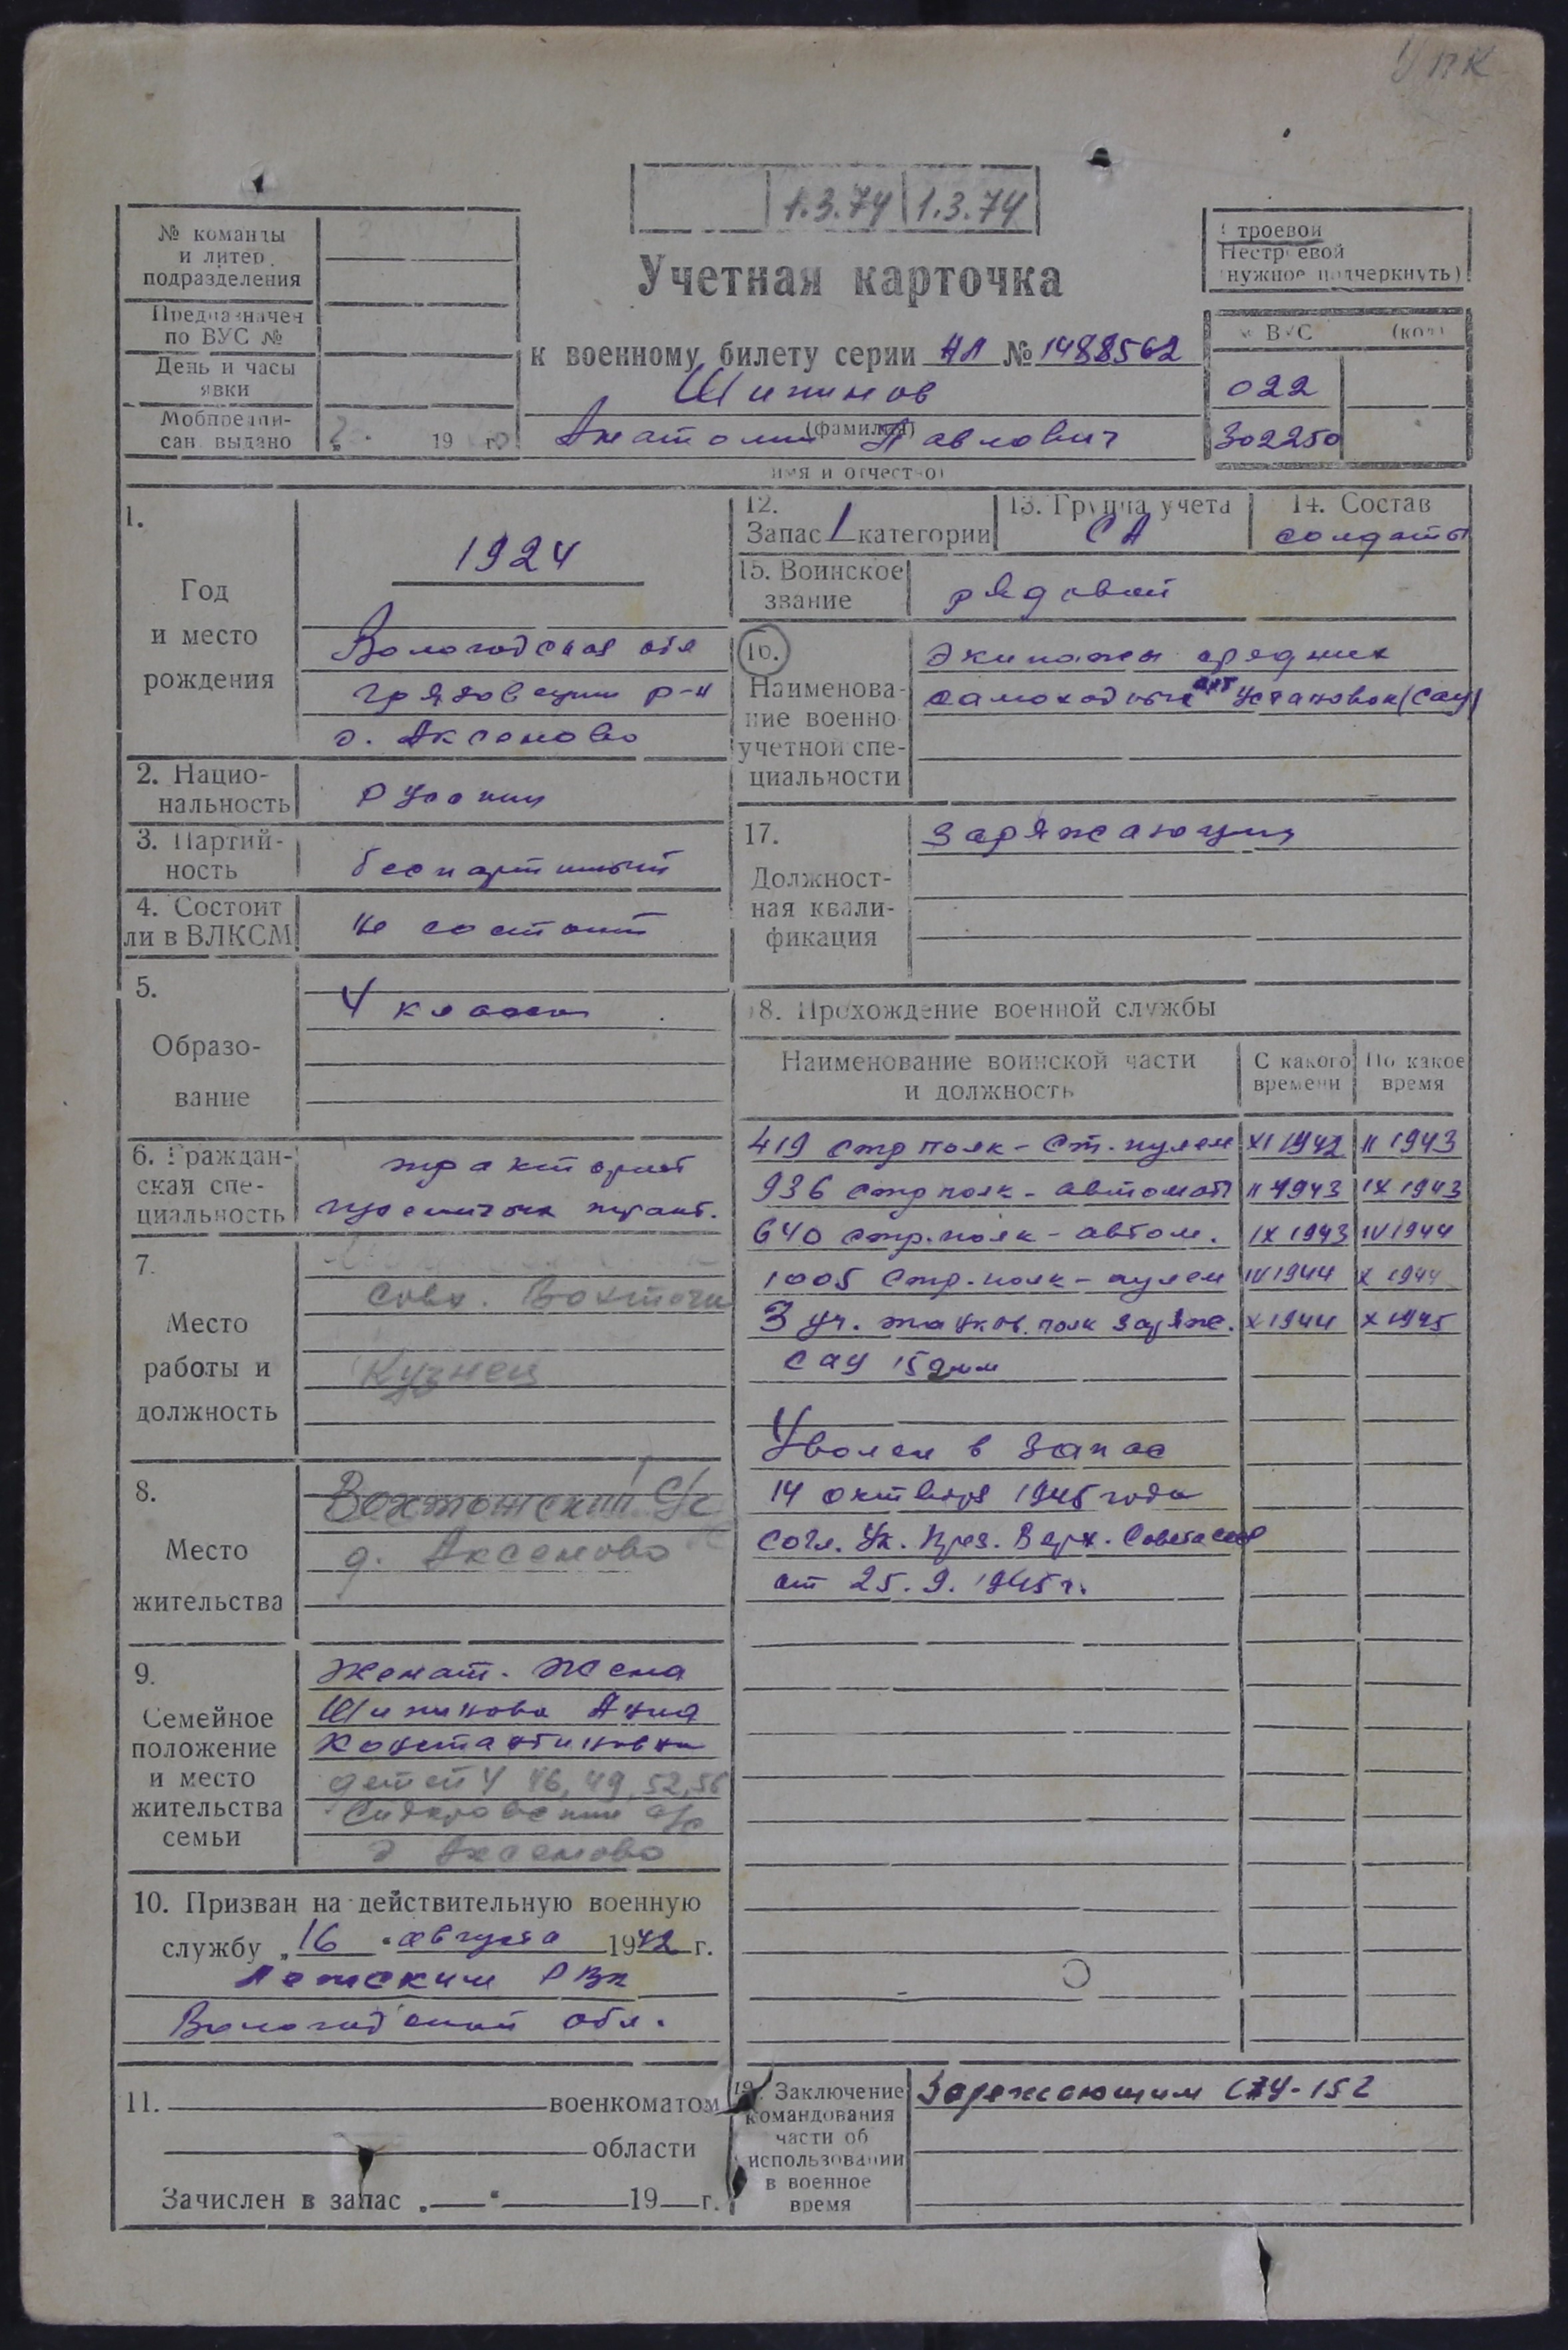 УПК
1.3.74 1.3.74
№ команды
и литер
подразделения
Предназначен
по ВУС №
День и часы
явки
Мобпредпи-
сан. выдано
19 г.
Учетная карточка
к военному билету серии НЛ № 1488562
(фамилия)
Анатолий Павлович
имя и отчество)
Строевой
Нестроевой
(нужное подчеркнуть)
№ ВУС (код)
022
302250
1.
Год
и место
рождения
1924
Вологодская обл
Грязовецкий р-н
д. Аксеново
2. Нацио-
нальность
русский
3. Партий-
ность
беспартийный
4. Состоит
ли в ВЛКСМ
не состоит
5.
Образо-
вание
4 класса
6. Граждан-
ская спе-
циальность
тракторист
7.
Место
работы и
должность
Совх. Вохтога
Кузнец
8.
Место
жительства
Вохтожский С/с
д. Аксеново
9.
Семейное
положение
и место
жительства
семьи
Женат. Жена
Анна
Константиновна
детей 4 46, 49, 52, 56
Сидоровский с/с
д Аксеново
10. Призван на действительную военную
службу „16 " августа 1942 г.
РВК
Вологодской обл.
11. военкоматом
области
Зачислен в запас „ " 19 г.
12.
Запас 1 категории
13. Группа учета
СА
14. Состав
солдаты
15. Воинское
звание
рядовой
16.
Наименова-
ние военно
учетной спе-
циальности
Экипажи средних
самоходных арт установок (САУ)
17.
Должност-
ная квали-
фикация
Заряжающий
18. Прохождение военной службы
Наименование воинской части
и должность
С какого
времени
По какое
время
419 стр полк - Ст. пулем XI 1942 II 1943
936 стр полк - автомат II 1943 IX 1943
640 стр. полк - автом. IX 1943 IV 1944
1005 Стр. полк - пулем IV 1944 X 1944
3 уч. танков. полк заряж. X 1944 X 1945
САУ 152мм
Уволен в запас
14 октября 1945 года
согл. Ук. През. Верх. Совета СССР
от 25. 9. 1945 г.
19. Заключение
командования
части об
использовании
в военное
время
Заряжающим САУ-152